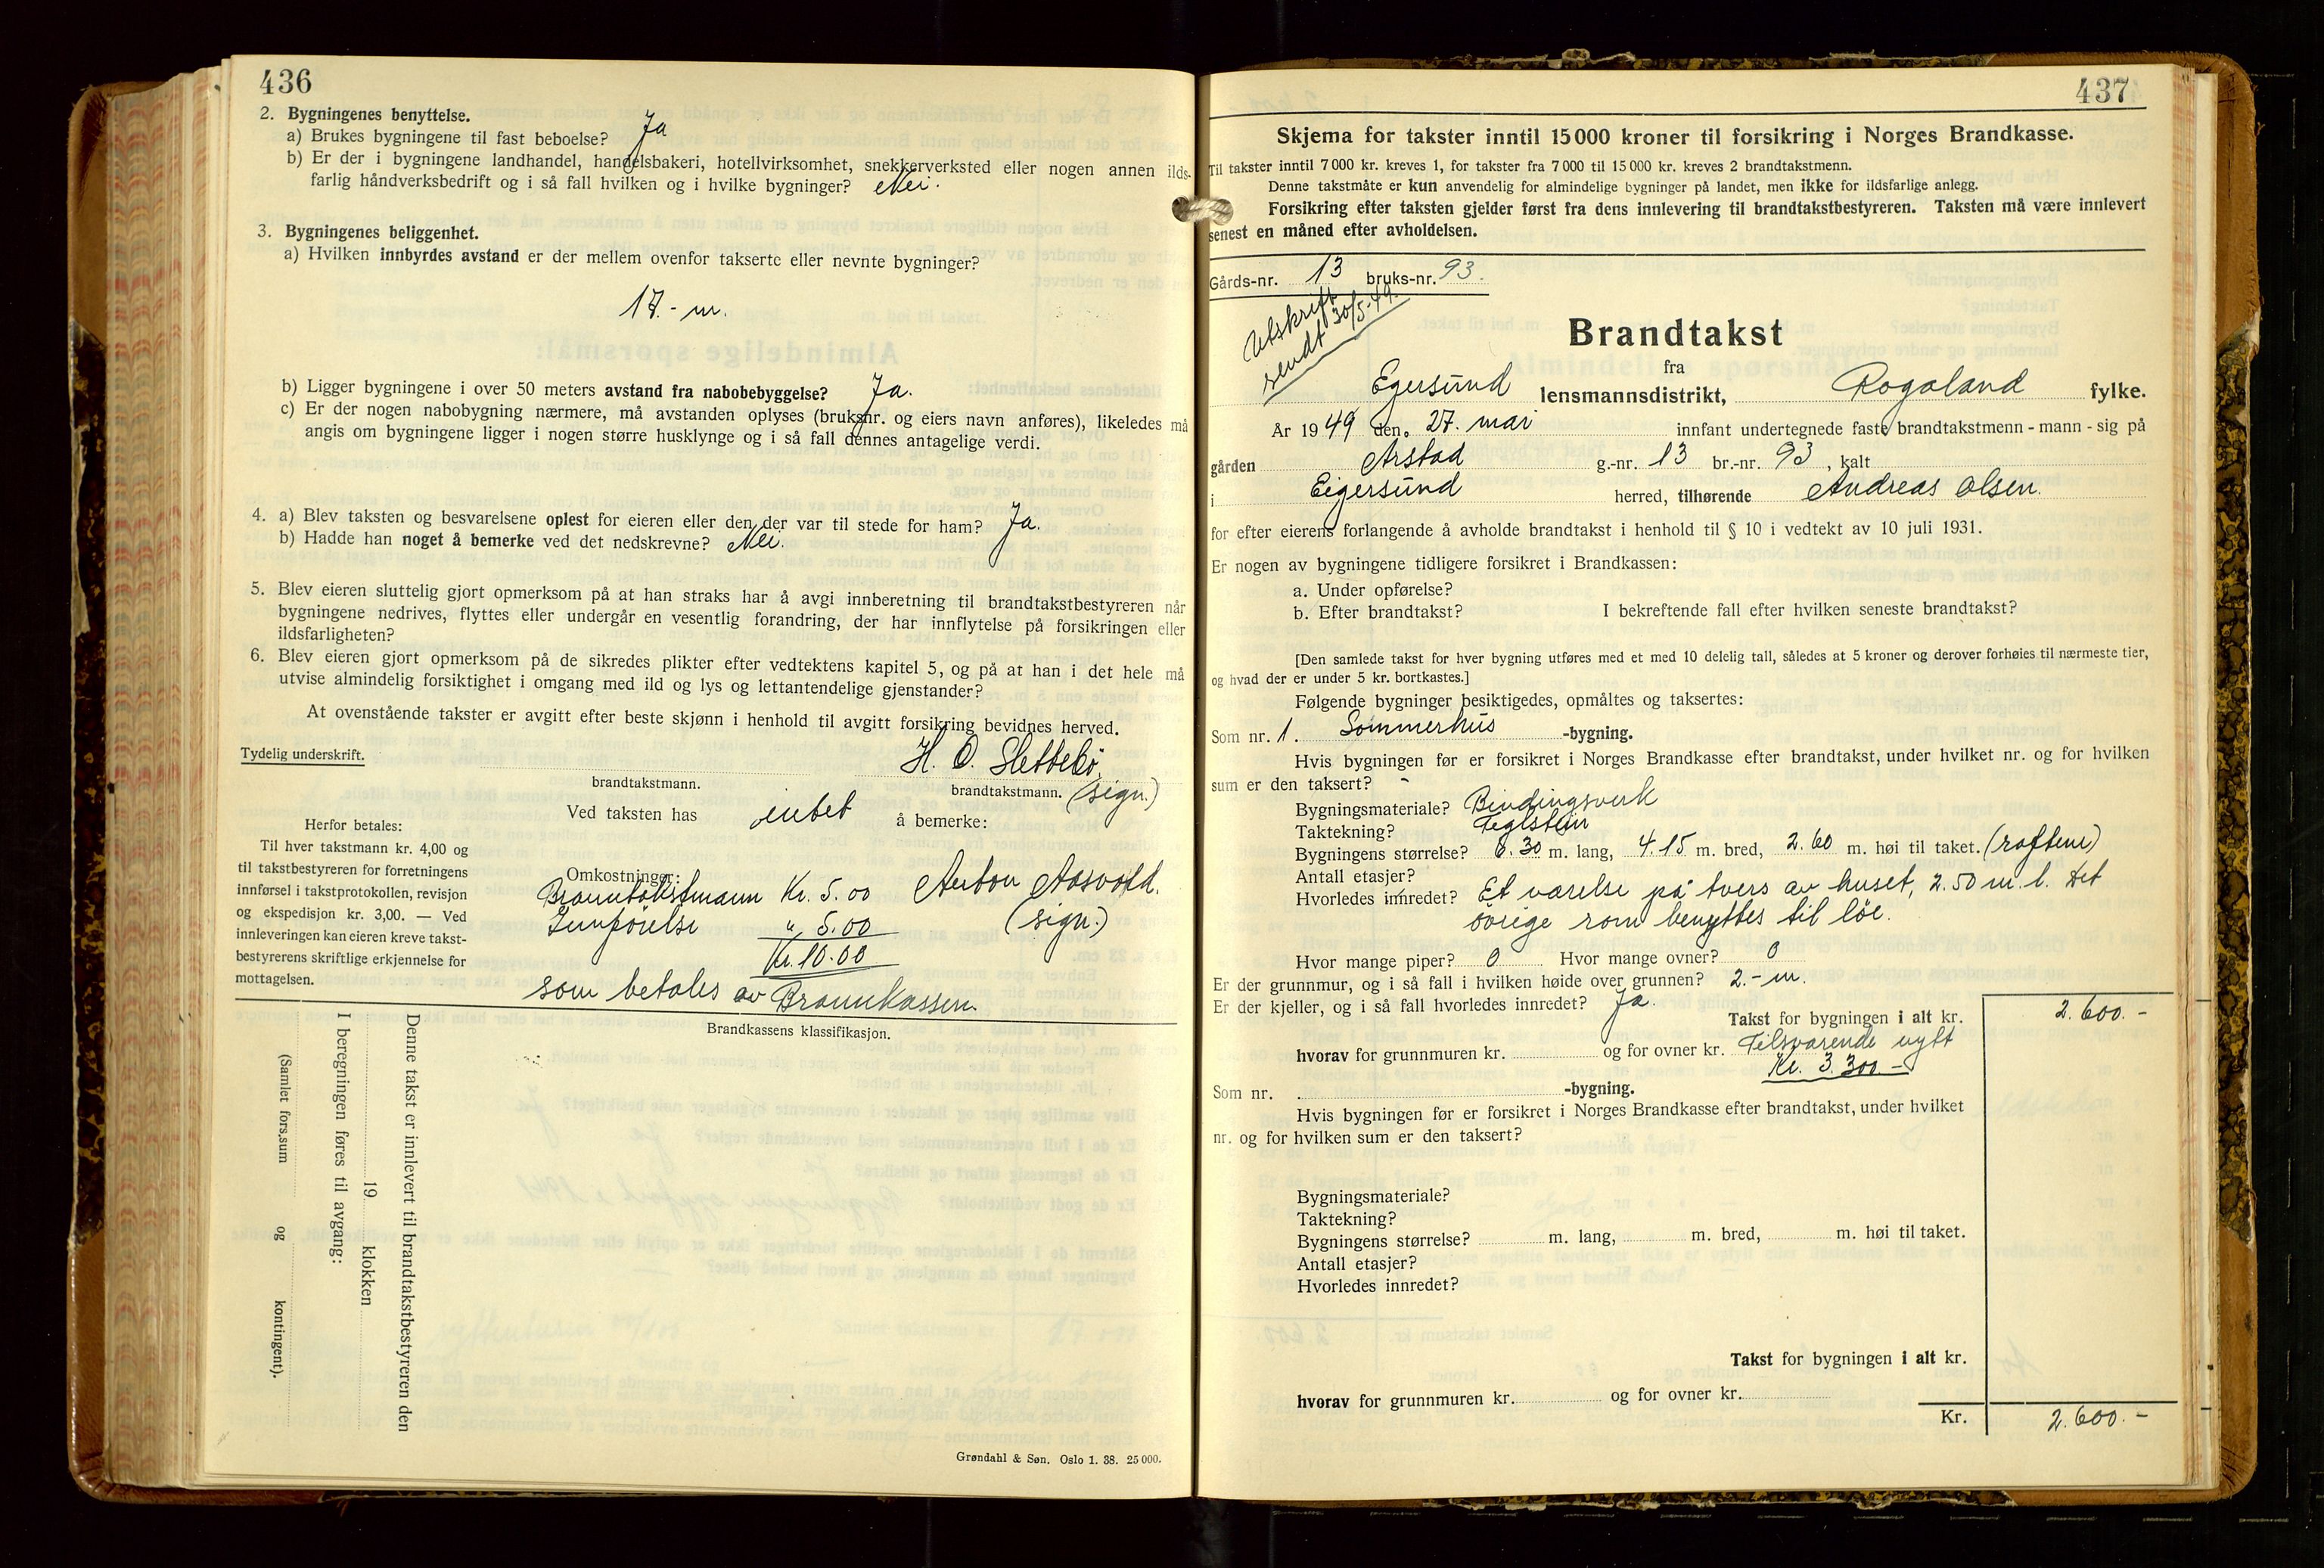 436
2. Bygningenes benyttelse.
a) Brukes bygningene til fast beboelse? Ja
b) Er der i bygningene landhandel, handelsbakeri, hotellvirksomhet, snekkerverksted eller nogen annen ilds-
farlig håndverksbedrift og i så fall hvilken og i hvilke bygninger? Nei.
3. Bygningenes beliggenhet.
a) Hvilken innbyrdes avstand er der mellem ovenfor takserte eller nevnte bygninger?
17.- m.
b) Ligger bygningene i over 50 meters avstand fra nabobebyggelse? Ja.
c) Er der nogen nabobygning nærmere, må avstanden oplyses (bruksnr. og eiers navn anføres), likeledes må
angis om bygningene ligger i nogen større husklynge og i så fall dennes antagelige verdi.
4. a) Blev taksten og besvarelsene oplest for eieren eller den der var til stede for ham? Ja.
b) Hadde han noget å bemerke ved det nedskrevne? Nei.
5. Blev eieren sluttelig gjort opmerksom på at han straks har å avgi innberetning til brandtakstbestyreren når
bygningene nedrives, flyttes eller undergår en vesentlig forandring, der har innflytelse på forsikringen eller
ildsfarligheten?
6. Blev eieren gjort opmerksom på de sikredes plikter efter vedtektens kapitel 5, og på at han i det hele må
utvise almindelig forsiktighet i omgang med ild og lys og lettantendelige gjenstander?
At ovenstående takster er avgitt efter beste skjønn i henhold til avgitt forsikring bevidnes herved.
Tydelig underskrift.
H. O. Slettebö
brandtakstmann. brandtakstmann. (sign.)
Ved taksten has intet å bemerke:
Herfor betales:
Til hver takstmann kr. 4,00 og
til takstbestyreren for forretningens
innførsel i takstprotokollen, revisjon
og ekspedisjon kr. 3,00. — Ved
innleveringen kan eieren kreve takst-
bestyrerens skriftlige erkjennelse for
mottagelsen.
Omkostninger:
Branntakstmann Kr. 5.00 Anton Aasvold.
Innförelse " 5.00 (sign.)
Kr. 10.00
som betales av Brannkassen.
Brandkassens klassifikasjon.
Denne takst er innlevert til brandtakstbestyreren den
19 klokken
I beregningen føres til avgang:
(Samlet fors.sum og kontingent).
Grøndahl & Søn. Oslo 1. 38. 25 000.
437
Skjema for takster inntil 15 000 kroner til forsikring i Norges Brandkasse.
Til takster inntil 7 000 kr. kreves 1, for takster fra 7 000 til 15 000 kr. kreves 2 brandtakstmenn.
Denne takstmåte er kun anvendelig for almindelige bygninger på landet, men ikke for ildsfarlige anlegg.
Forsikring efter taksten gjelder først fra dens innlevering til brandtakstbestyreren. Taksten må være innlevert
senest en måned efter avholdelsen.
Gårds-nr. 13 bruks-nr. 93.
Utskrift
sendt 30/5-49.
Brandtakst
fra
Egersund lensmannsdistrikt, Rogaland fylke.
År 1949 den 27. mai innfant undertegnede faste brandtakstmenn - mann - sig på
gården Arstad g.-nr. 13 br.-nr. 93, kalt
i Eigersund herred, tilhørende Andreas Olsen.
for efter eierens forlangende å avholde brandtakst i henhold til § 10 i vedtekt av 10 juli 1931.
Er nogen av bygningene tidligere forsikret i Brandkassen:
a. Under opførelse?
b. Efter brandtakst? I bekreftende fall efter hvilken seneste brandtakst?
[Den samlede takst for hver bygning utføres med et med 10 delelig tall, således at 5 kroner og derover forhøies til nærmeste tier,
og hvad der er under 5 kr. bortkastes.]
Følgende bygninger besiktigedes, opmåltes og taksertes:
Som nr. 1. Sommerhus -bygning.
Hvis bygningen før er forsikret i Norges Brandkasse efter brandtakst, under hvilket nr. og for hvilken
sum er den taksert? -
Bygningsmateriale? Bindingsverk
Taktekning? Teglstein
Bygningens størrelse? 6.30 m. lang, 4.15 m. bred, 2.60 m. høi til taket. (raftene)
Antall etasjer?
Hvorledes innredet? Et værelse på tvers av huset, 2.50 m. l. det
övrige rom benyttes til löe.
Hvor mange piper? 0 Hvor mange ovner? 0
Er der grunnmur, og i så fall i hvilken høide over grunnen? 2.- m.
Er der kjeller, og i så fall hvorledes innredet? Ja.
Takst for bygningen i alt kr. 2.600.-
hvorav for grunnmuren kr. og for ovner kr. Tilsvarende nytt
Kr. 3.300.-
Som nr. -bygning.
Hvis bygningen før er forsikret i Norges Brandkasse efter brandtakst, under hvilket
nr. og for hvilken sum er den taksert?
Bygningsmateriale?
Taktekning?
Bygningens størrelse? m. lang, m. bred, m. høi til taket.
Antall etasjer?
Hvorledes innredet?
Takst for bygningen i alt kr.
hvorav for grunnmuren kr. og for ovner kr.
Kr. 2.600.-